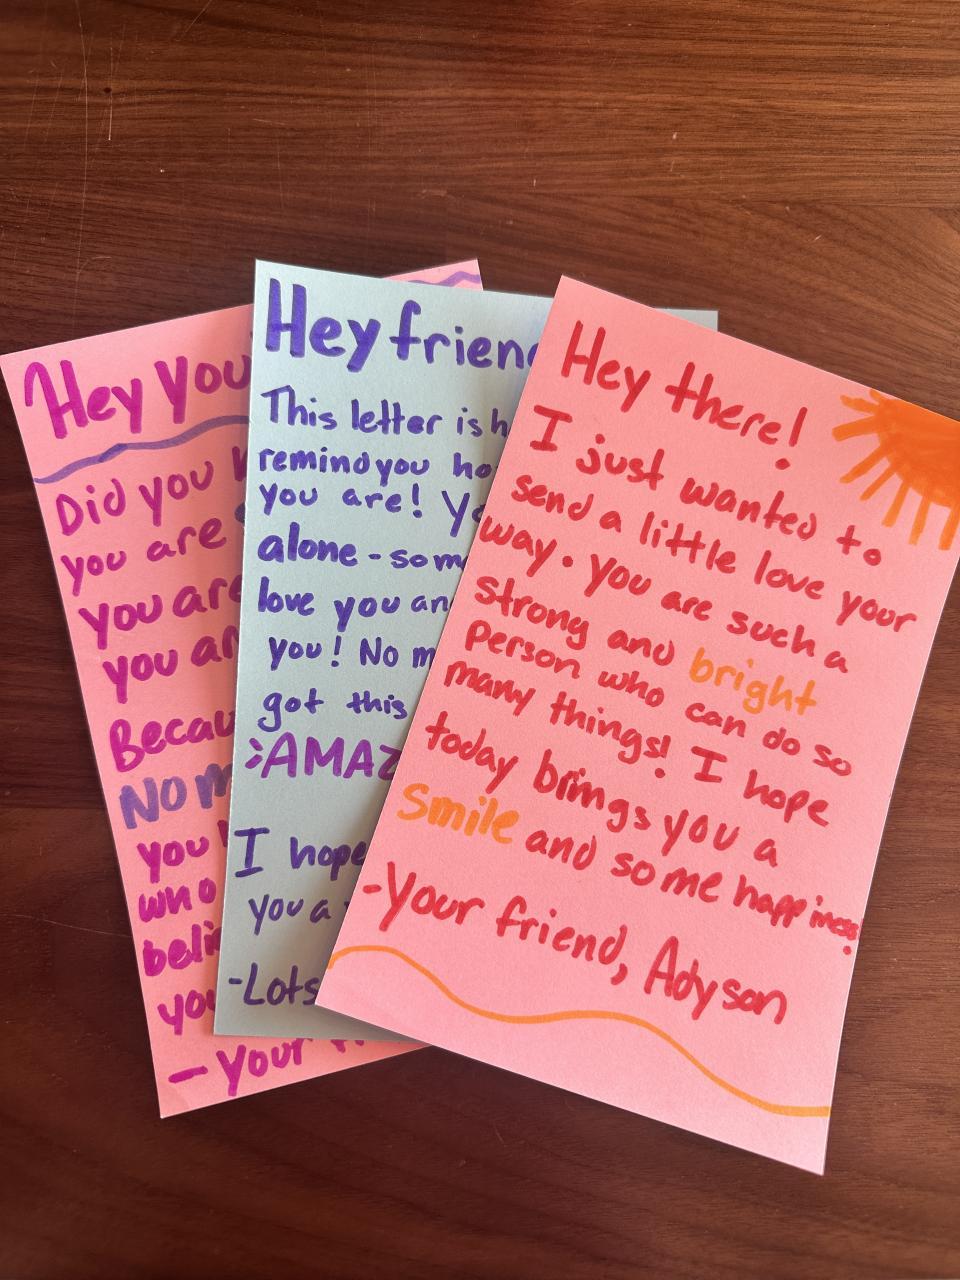 Hey you
Did you
you are
you are
you
Becau
No m
you
who
beli
you
- Your
Hey frien
This letter is h
remind you ho
you are! Yo
alone - som
love you an
you! No m
got this
AMAZ
I hope
you a
-Lots
Hey there!
I just wanted to
send a little love your
way. You are such a
strong and bright
person who can do so
many things! I hope
today brings you a
smile and some happiness!
-Your friend, Adyson